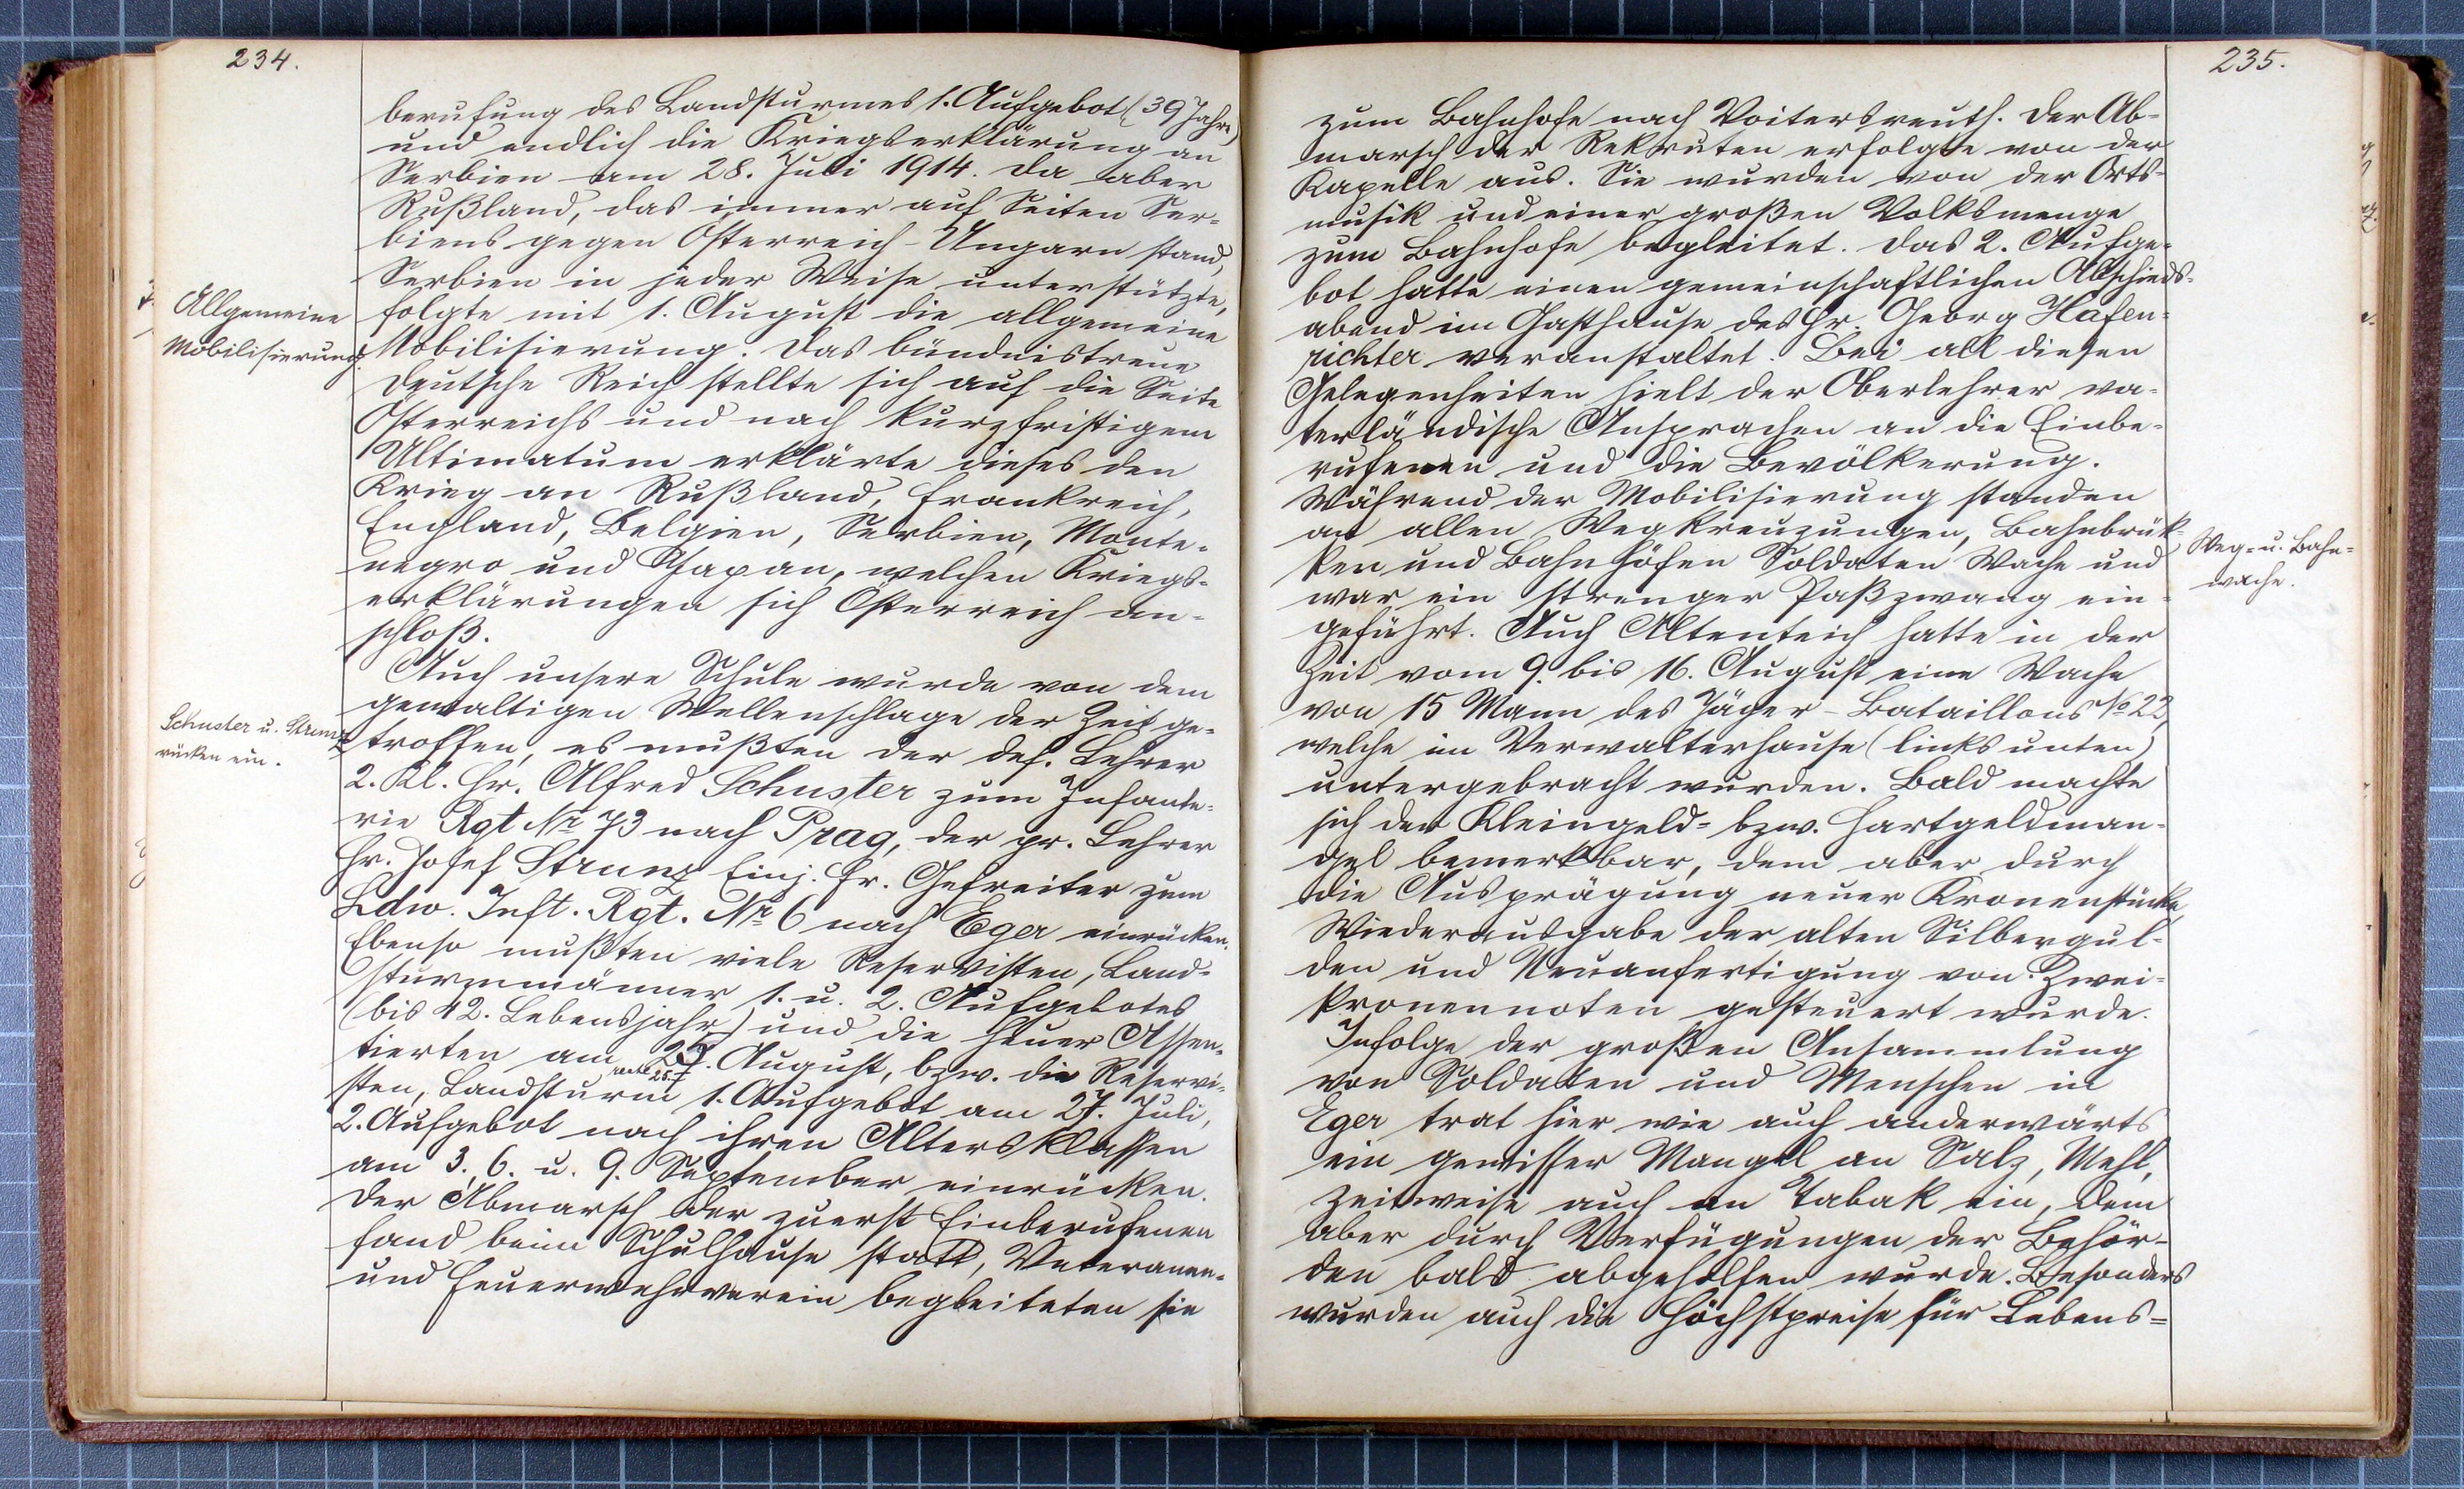 234.
berufung des Landsturmes 1. Aufgebot (39 Jahre)
und endlich die Kriegserklärung an
Serbien am 28. Juli 1914. Da aber
Rußland, das immer auf Seiten Ser-
biens gegen Österreich-Ungarn stand,
Serbien in jeder Weise unterstützte,
Allgemeine
Mobilisierung.
folgte mit 1. August die allgemeine
Mobilisierung. Das bündnistreue
Deutsche Reich stellte sich auf die Seite
Österreichs und nach kurzfristigem
Ultimatum erklärte dieses den
Krieg an Rußland, Frankreich,
England, Belgien, Serbien, Monte-
negro und Japan, welchen Kriegs-
erklärungen sich Österreich an-
schloß.
Auch unsere Schule wurde von dem
gewaltigen Wellenschlage der Zeit ge-
Schuster u. Strunz
rücken ein.
troffen, es mußten der def. Lehrer
2. Kl. Hr. Alfred Schuster zum Infante-
rie Rgt Nr 73 nach Prag, der pr. Lehrer
Hr. Josef Strunz Einj. Fr. Gefreiter zum
Ldw. Inft. Rgt. Nr 6 nach Eger einrücken.
Ebenso mußten viele Reservisten, Land-
sturmmänner 1. u. 2. Aufgebotes
(bis 42. Lebensjahr) und die heuer Assen-
tierten am August, bzw. die Reservi-
sten, Landsturm 1. Aufgebot am 27. Juli,
2. Aufgebot nach ihren Altersklassen
am 3. 6. u. 9. September einrücken.
Der Abmarsch der zuerst Einberufenen
fand beim Schulhause statt, Veteranen-
und Feuerwehrverein begleiteten sie
235.
zum Bahnhofe nach Voitersreuth. Der Ab-
marsch der Rekruten erfolgte von der
Kapelle aus. Sie wurden von der Orts-
musik und einer großen Volksmenge
zum Bahnhofe begleitet. Das 2. Aufge-
bot hatte einen gemeinschaftlichen Abschieds-
abend im Gasthause des Hr. Georg Hafen-
richter veranstaltet. Bei all diesen
Gelegenheiten hielt der Oberlehrer va-
terländische Ansprachen an die Einbe-
rufenen und die Bevölkerung.
Während der Mobilisierung standen
an allen Wegkreuzungen, Bahnbrük-
ken und Bahnhöfen Soldaten Wache und
Weg- u. Bahn-
wache.
war ein strenger Paßzwang ein-
geführt. Auch Altenteich hatte in der
Zeit vom 9. bis 16. August eine Wache
von 15 Mann des Jäger-Bataillons No 22,
welche im Verwalterhause (links unten)
untergebracht wurden. Bald machte
sich der Kleingeld- bzw. Hartgeldman-
gel bemerkbar, dem aber durch
die Ausprägung neuer Kronenstücke,
Wiederausgabe der alten Silbergul-
den und Neuanfertigung von Zwei-
kronennoten gesteuert wurde.
Infolge der großen Ansammlung
von Soldaten und Menschen in
Eger trat hier wie auch anderwärts
ein gewisser Mangel an Salz, Mehl,
zeitweise auch an Tabak ein, dem
aber durch Verfügungen der Behör-
den bald abgeholfen wurde. Besonders
wurden auch die Höchstpreise für Lebens-